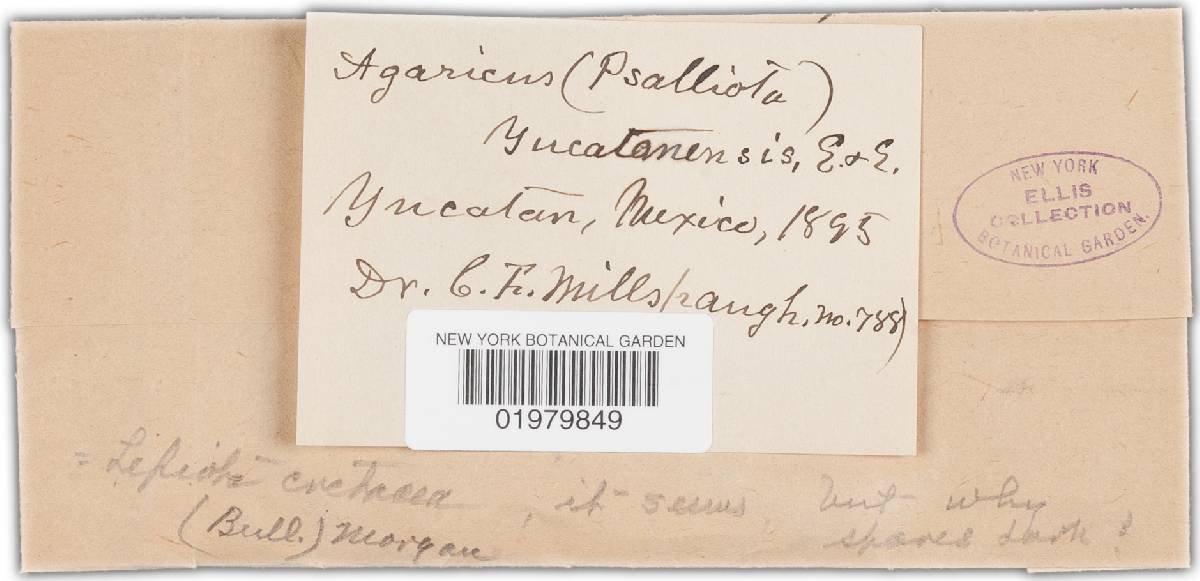 Agaricus (Psalliota)
Yucatanensis, E. & E.
Yucatan, Mexico, 1895
Dr. C. F. Millspaugh, no. 788)
NEW YORK BOTANICAL GARDEN
01979849
NEW YORK
ELLIS
COLLECTION
BOTANICAL GARDEN.
= Lepiota cretacea, it seems, but why
(Bull.) Morgan spores dark?